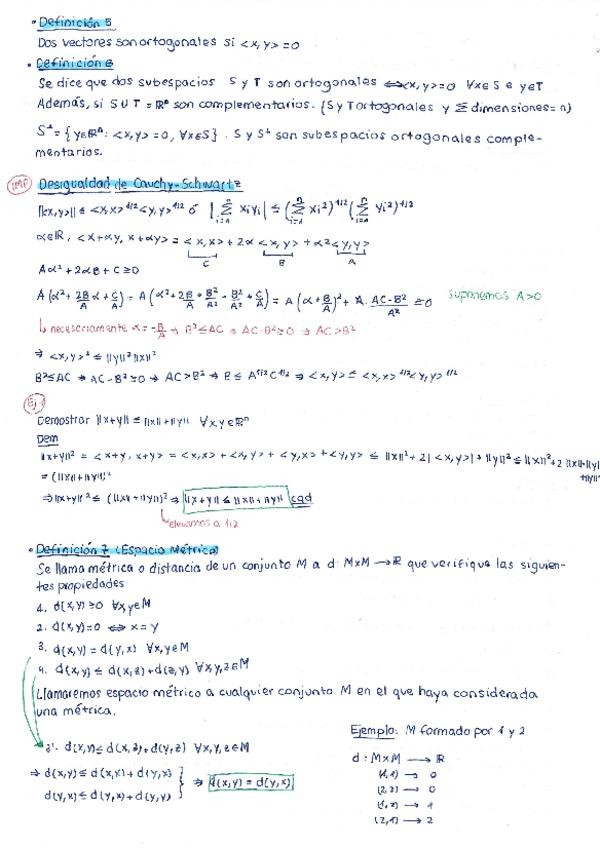 • Definición 5
Dos vectores son ortogonales si <x,y> = 0
• Definición 6
Se dice que dos subespacios S y T son ortogonales ⇔ <x,y> = 0 ∀x∈S e y∈T
Además, si S ∪ T = ℝⁿ son complementarios. (S y T ortogonales y Σ dimensiones = n)
S^⊥ = {y∈ℝⁿ: <x,y> = 0, ∀x∈S}. S y S^⊥ son subespacios ortogonales comple-
mentarios.
IMP Desigualdad de Cauchy-Schwartz
||<x,y>|| ≤ <x,x>^1/2 <y,y>^1/2 ó |Σ_{i=1}^n xi yi| ≤ (Σ_{i=1}^n xi²)^1/2 (Σ_{i=1}^n yi²)^1/2
α∈ℝ, <x+αy, x+αy> = <x,x> + 2α <x,y> + α² <y,y>
C B A
Aα² + 2αB + C ≥ 0
A(α² + 2B/A α + C/A) = A(α² + 2B/A + B²/A² - B²/A² + C/A) = A(α + B/A)² + A · AC-B²/A² ≥ 0 Suponemos A>0
↳ necesariamente α = -B/A → B² ≤ AC → AC-B² ≥ 0 → AC > B²
⇒ <x,y>² ≤ ||y||² ||x||²
B² ≤ AC → AC-B² ≥ 0 → AC > B² → B ≤ A^1/2 C^1/2 ⇒ <x,y> ≤ <x,x>^1/2 <y,y>^1/2
Ej
Demostrar ||x+y|| ≤ ||x|| + ||y|| ∀x,y∈ℝⁿ
Dem
||x+y||² = <x+y, x+y> = <x,x> + <x,y> + <y,x> + <y,y> ≤ ||x||² + 2|<x,y>| + ||y||² ≤ ||x||² + 2||x||·||y||
+||y||²
= (||x|| + ||y||)²
⇒ ||x+y||² ≤ (||x|| + ||y||)² ⇒ ||x+y|| ≤ ||x|| + ||y|| cqd
↳ elevamos a 1/2
• Definición 7 (Espacio Métrico)
Se llama métrica o distancia de un conjunto M a d: M×M → ℝ que verifique las siguien-
tes propiedades:
1. d(x,y) ≥ 0 ∀x,y∈M
2. d(x,y) = 0 ⇔ x = y
3. d(x,y) = d(y,x) ∀x,y∈M
4. d(x,y) ≤ d(x,z) + d(z,y) ∀x,y,z∈M
Llamaremos espacio métrico a cualquier conjunto M en el que haya considerada
una métrica.
3'. d(x,y) ≤ d(x,z) + d(y,z) ∀x,y,z∈M
⇒ d(x,y) ≤ d(x,x) + d(y,x)
d(y,x) ≤ d(y,x) + d(y,y) } ⇒ d(x,y) = d(y,x)
Ejemplo: M formado por 1 y 2
d: M×M → ℝ
(1,1) → 0
(2,2) → 0
(1,2) → 1
(2,1) → 2